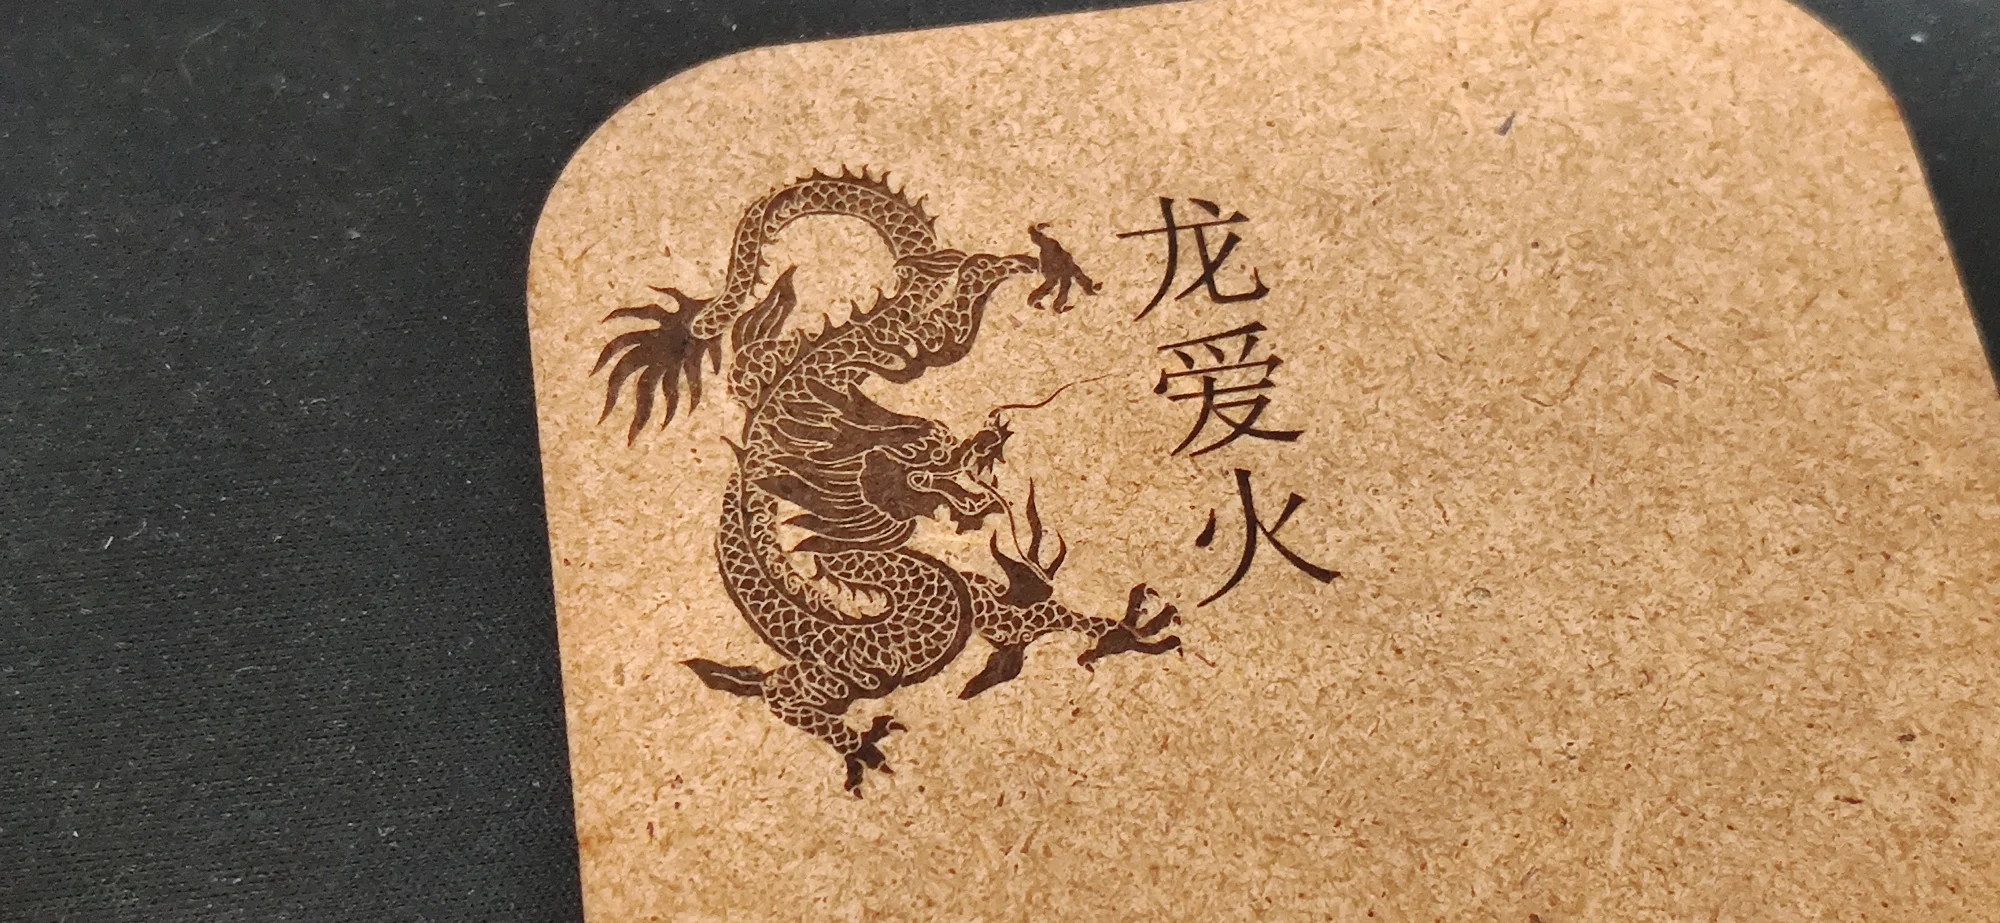 龙爱火